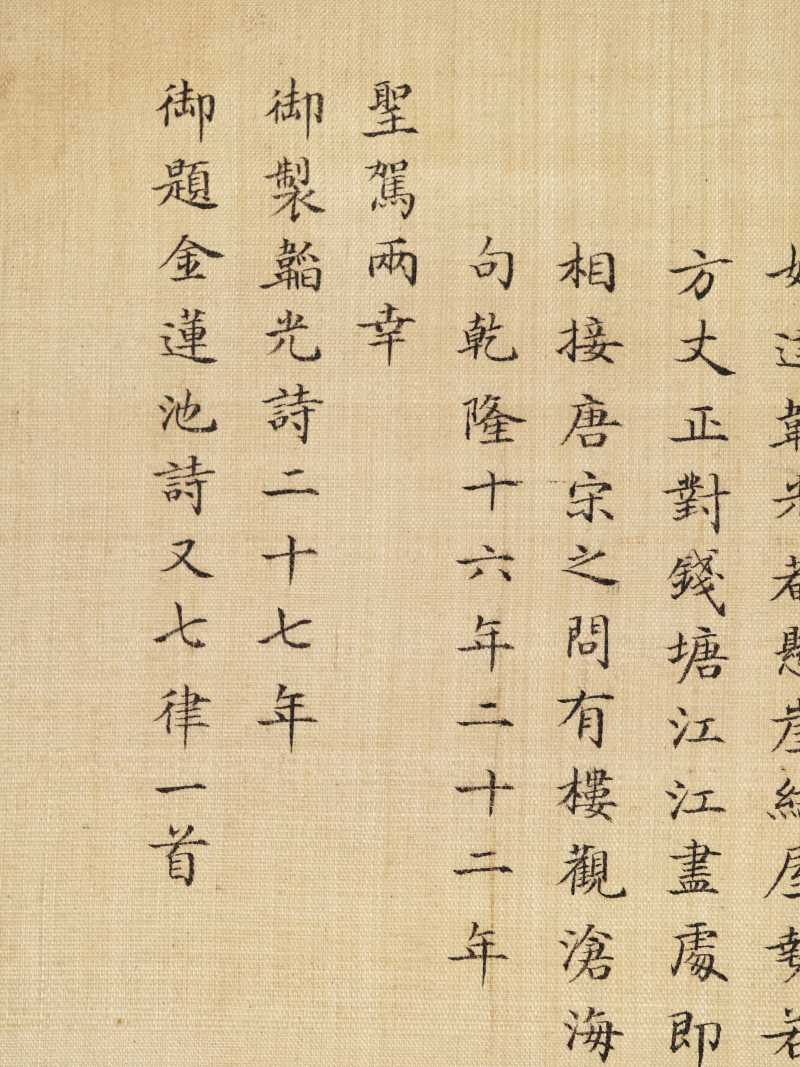 光者懸崖結屋勢若
方丈正對錢塘江江盡處即
相接唐宋之問有樓觀滄海
句乾隆十六年二十二年
聖駕兩幸
御製韜光詩二十七年
御題金蓮池詩又七律一首